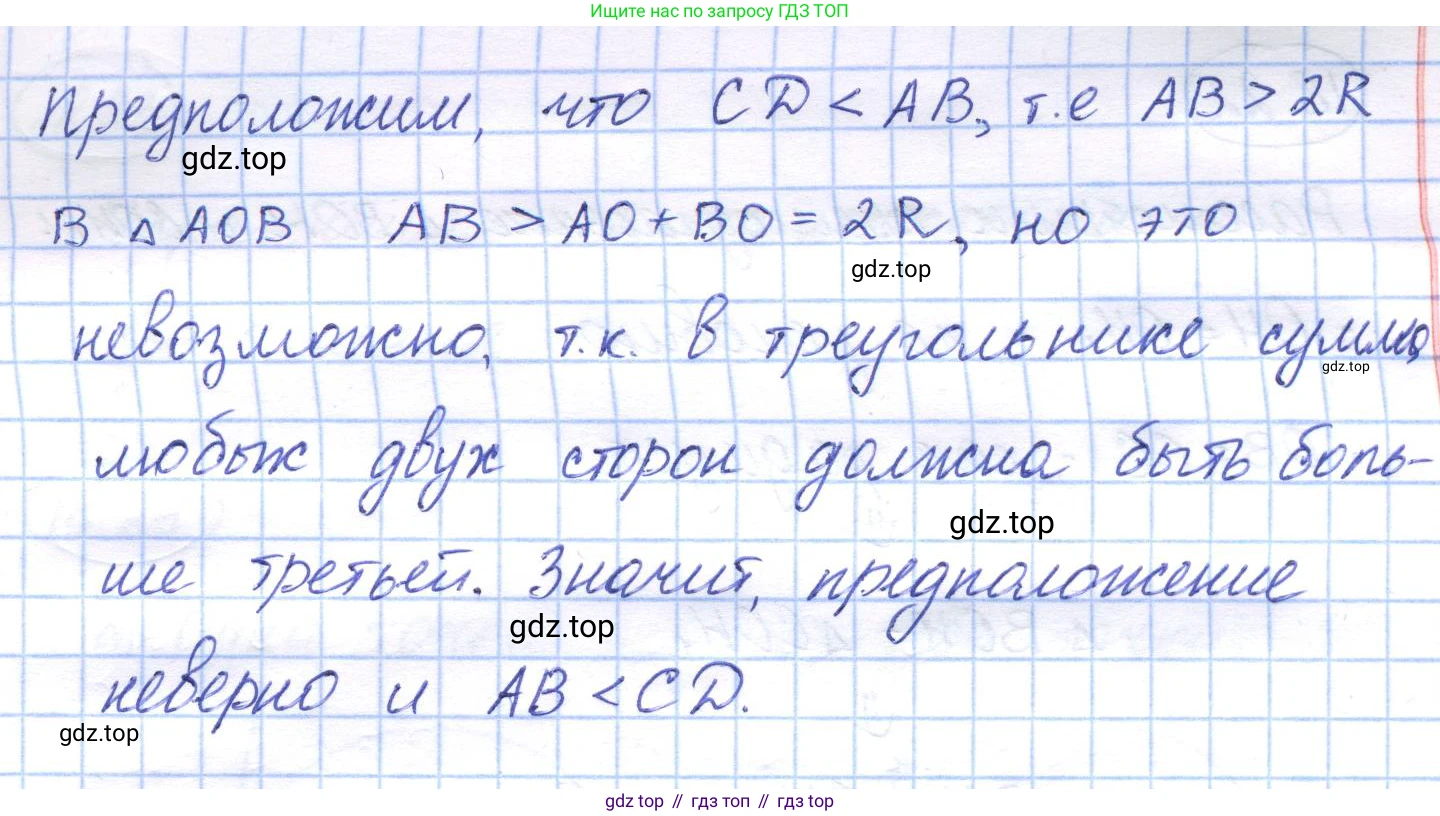 Ищите нас по запросу ГДЗ ТОП
Предположим, что CD < AB, т.е AB > 2R
gdz.top
В △ AOB AB > AO + BO = 2R, но это
gdz.top
невозможно, т.к. в треугольнике сумма
gdz.top
любых двух сторон должна быть боль-
gdz.top
ше третьей. Значит, предположение
gdz.top
неверно и AB < CD.
gdz.top
gdz top // гдз топ // гдз top